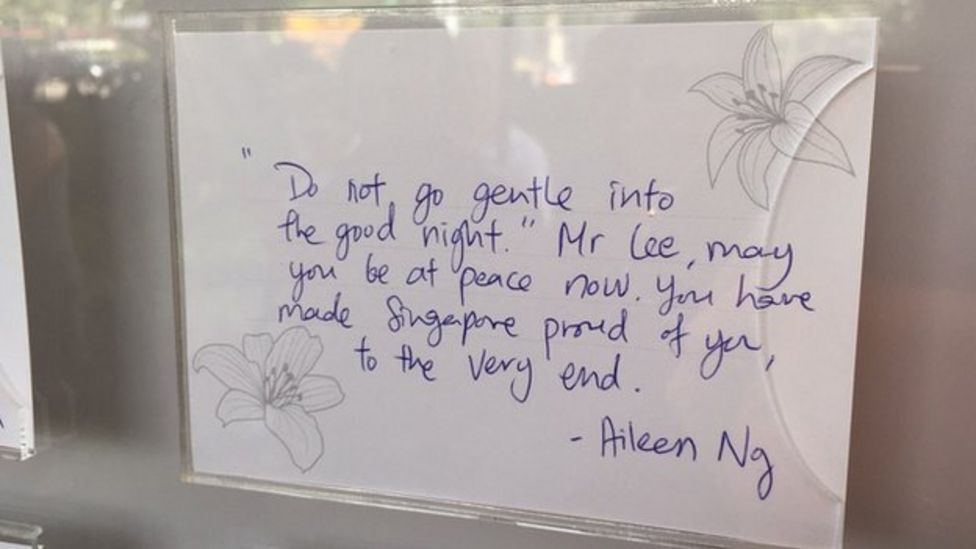 " Do not go gentle into
the good night." Mr Lee, may
you be at peace now. You have
made Singapore proud of you,
to the very end.
- Aileen Ng